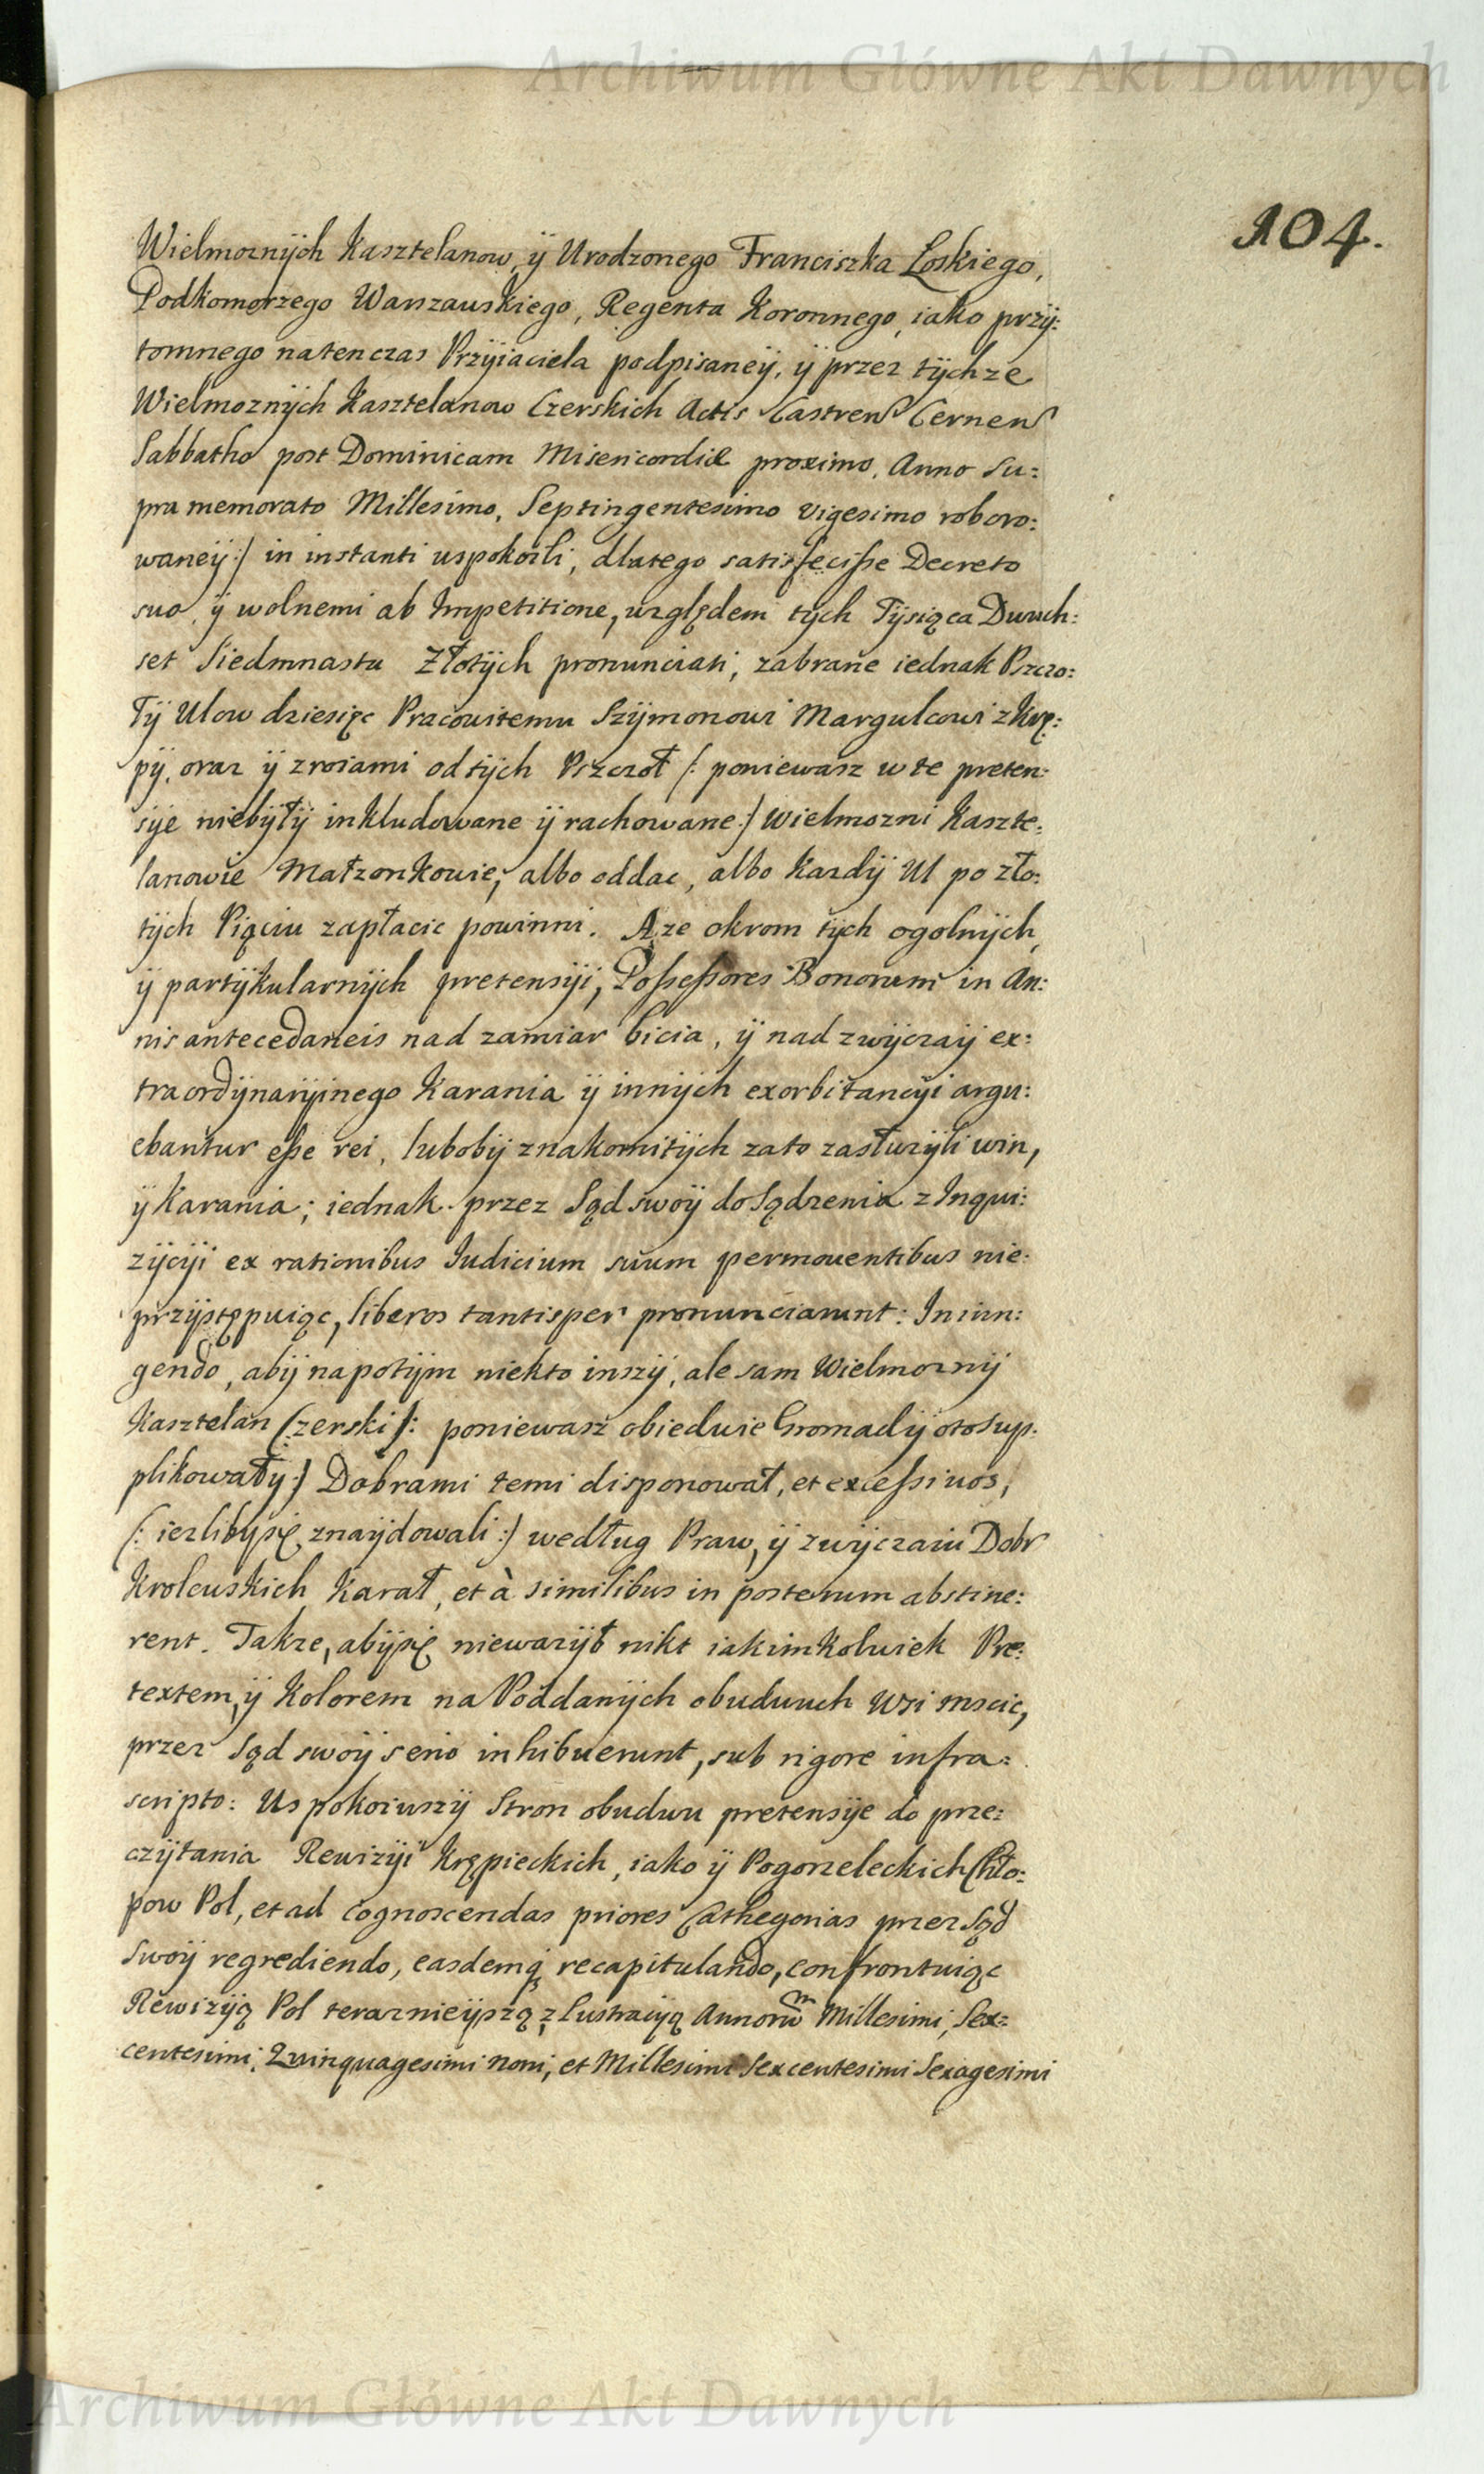 Archiwum Główne Akt Dawnych
104.
Wielmoznÿch Kasztelanow, ÿ Urodzonego Franciszka Loskiego,
Podkomorzego Warszawskiego, Regenta Koronnego, iako przÿ:
tomnego natenczas Przÿiaciela podpisaneÿ, ÿ przez tÿchze
Wielmoznÿch Kasztelanow Czerskich Actis Castren Cernen
Sabbatho post Dominicam Misericordiæ proximo, Anno Su:
pra memorato Millesimo, Septingentesimo vigesimo roboro:
waneÿ :/ in instanti uspokoili, dlatego satisfecisse Decreto
suo, ÿ wolnemi ab Impetitione, względem tÿch Tÿsiąca Dwuch:
set Siedmnastu Złotÿch pronunciati, zabrane iednak Pszczo:
łÿ Ulow dziesięc Pracowitemu Szÿmonowi Margulcowi z Krę:
pÿ, oraz ÿ zroiami od tÿch Pszczoł /: poniewasz w te preten:
sÿe niebÿłÿ inkludowane ÿ rachowane :/ Wielmozni Kaszte:
lanowie Małzonkowie, albo oddac, albo kazdÿ Ul po zło:
tÿch Piąciu zapłacic powinni. A ze okrom tÿch ogolnÿch,
ÿ partÿkularnÿch pretensÿi, Possessores Bonorum in An:
nis antecedaneis nad zamiar bicia, ÿ nad zwÿczaÿ ex:
traordÿnarÿinego karania ÿ innÿch exorbitancÿi argu:
ebantur esse rei, lubobÿ znakomitÿch zato zasłuzÿli win,
ÿ karania; iednak przez Sąd swoÿ do Sądzenia z Inqui:
zÿcÿi ex rationibus Iudicium suum permoventibus nie:
przÿstępuiąc, liberos tantisper pronunciarunt: Iniun:
gendo, abÿ napotÿm niekto inszÿ, ale sam Wielmoznÿ
Kasztelan Czerski /: poniewasz obiedwie Gromadÿ oto Sup:
plikowałÿ :/ Dobrami temi disponował, et excessivos,
/: iezlibÿsię znaÿdowali :/ według Praw, ÿ zwÿczaiu Dobr
Krolewskich karał, et à similibus in posterum abstine:
rent. Takze, abÿsię niewazÿł nikt iakimkolwiek Pre:
textem, ÿ kolorem na Poddanÿch obudwuch Wsi mscic,
przez Sąd swoÿ serio inhibuerunt, sub rigore infra:
scripto: Uspokoiwszÿ Stron obudwu pretensÿe do prze:
czÿtania Rewizÿi Krępieckich, iako ÿ Pogorzeleckich Chło:
pow Pol, et ad cognoscendas priores Cathegorias przez Sąd
swoÿ regrediendo, easdemq recapitulando, confrontuiąc
Rewizÿą Pol teraznieÿszą z Lustracÿą Annorum Millesimi, Sex:
centesimi, Quinquagesimi noni, et Millesimi Sexcentesimi Sexagesimi
Archiwum Główne Akt Dawnych